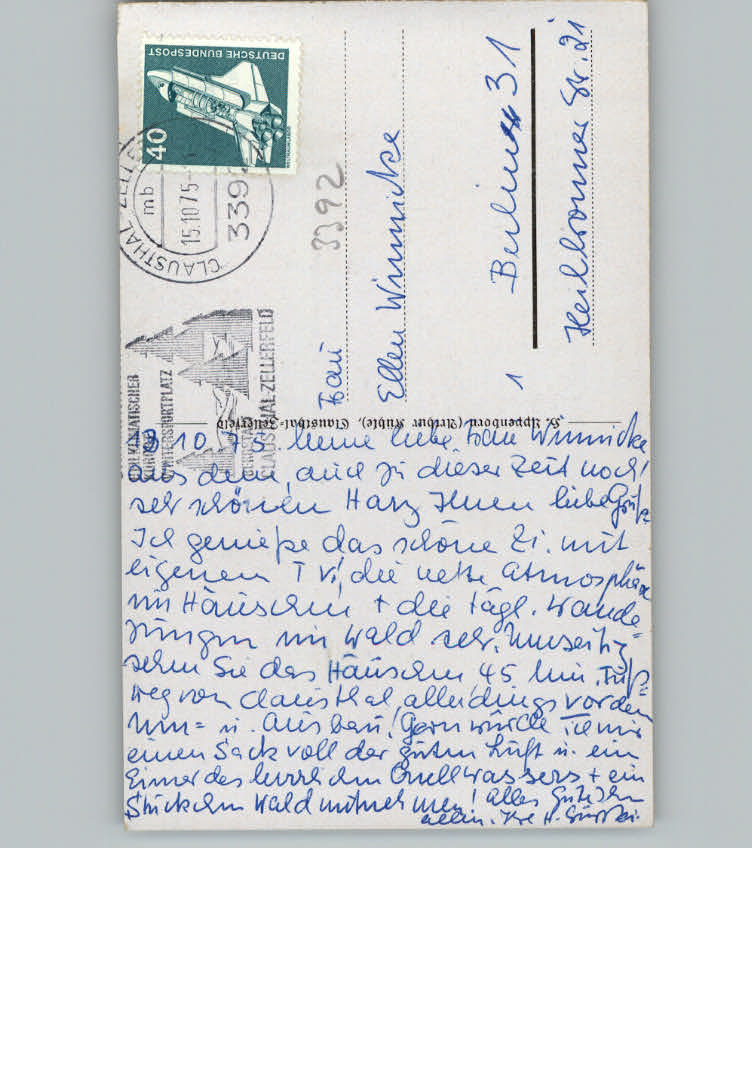 DEUTSCHE BUNDESPOST
40
CLAUSTHAL-ZELLE
mb
15.10.75
339
HEILKLIMATISCHER
KURORT
WINTERSPORTPLATZ
BERGSTADT
CLAUSTHAL-ZELLERFELD
3392
Frau
Ellen Winnicke
1 Berlin 31
Heilbronner Str. 21
H. Lippenborn (Arthur Kühle), Clausthal-Zellerfeld
13.10.75. Meine liebe Frau Winnicke
aus dem, auch zu dieser Zeit noch
sehr schönen Harz Ihnen liebe Grüße
Ich genieße das schöne Zi. mit
eigenem TV, die nette Atmosphäre
im Häuschen + die tägl. Wande=
rungen im Wald sehr. Umseitig
sehen Sie das Häuschen 45 Min. Fuß=
weg von Clausthal, allerdings vor dem
Um= u. Ausbau! Gern würde ich mir
einen Sack voll der guten Luft u. ein
Eimer des herrlichen Quellwassers + ein
Stückchen Wald mitnehmen! Alles Gute Ihnen
allen. Ihre H.